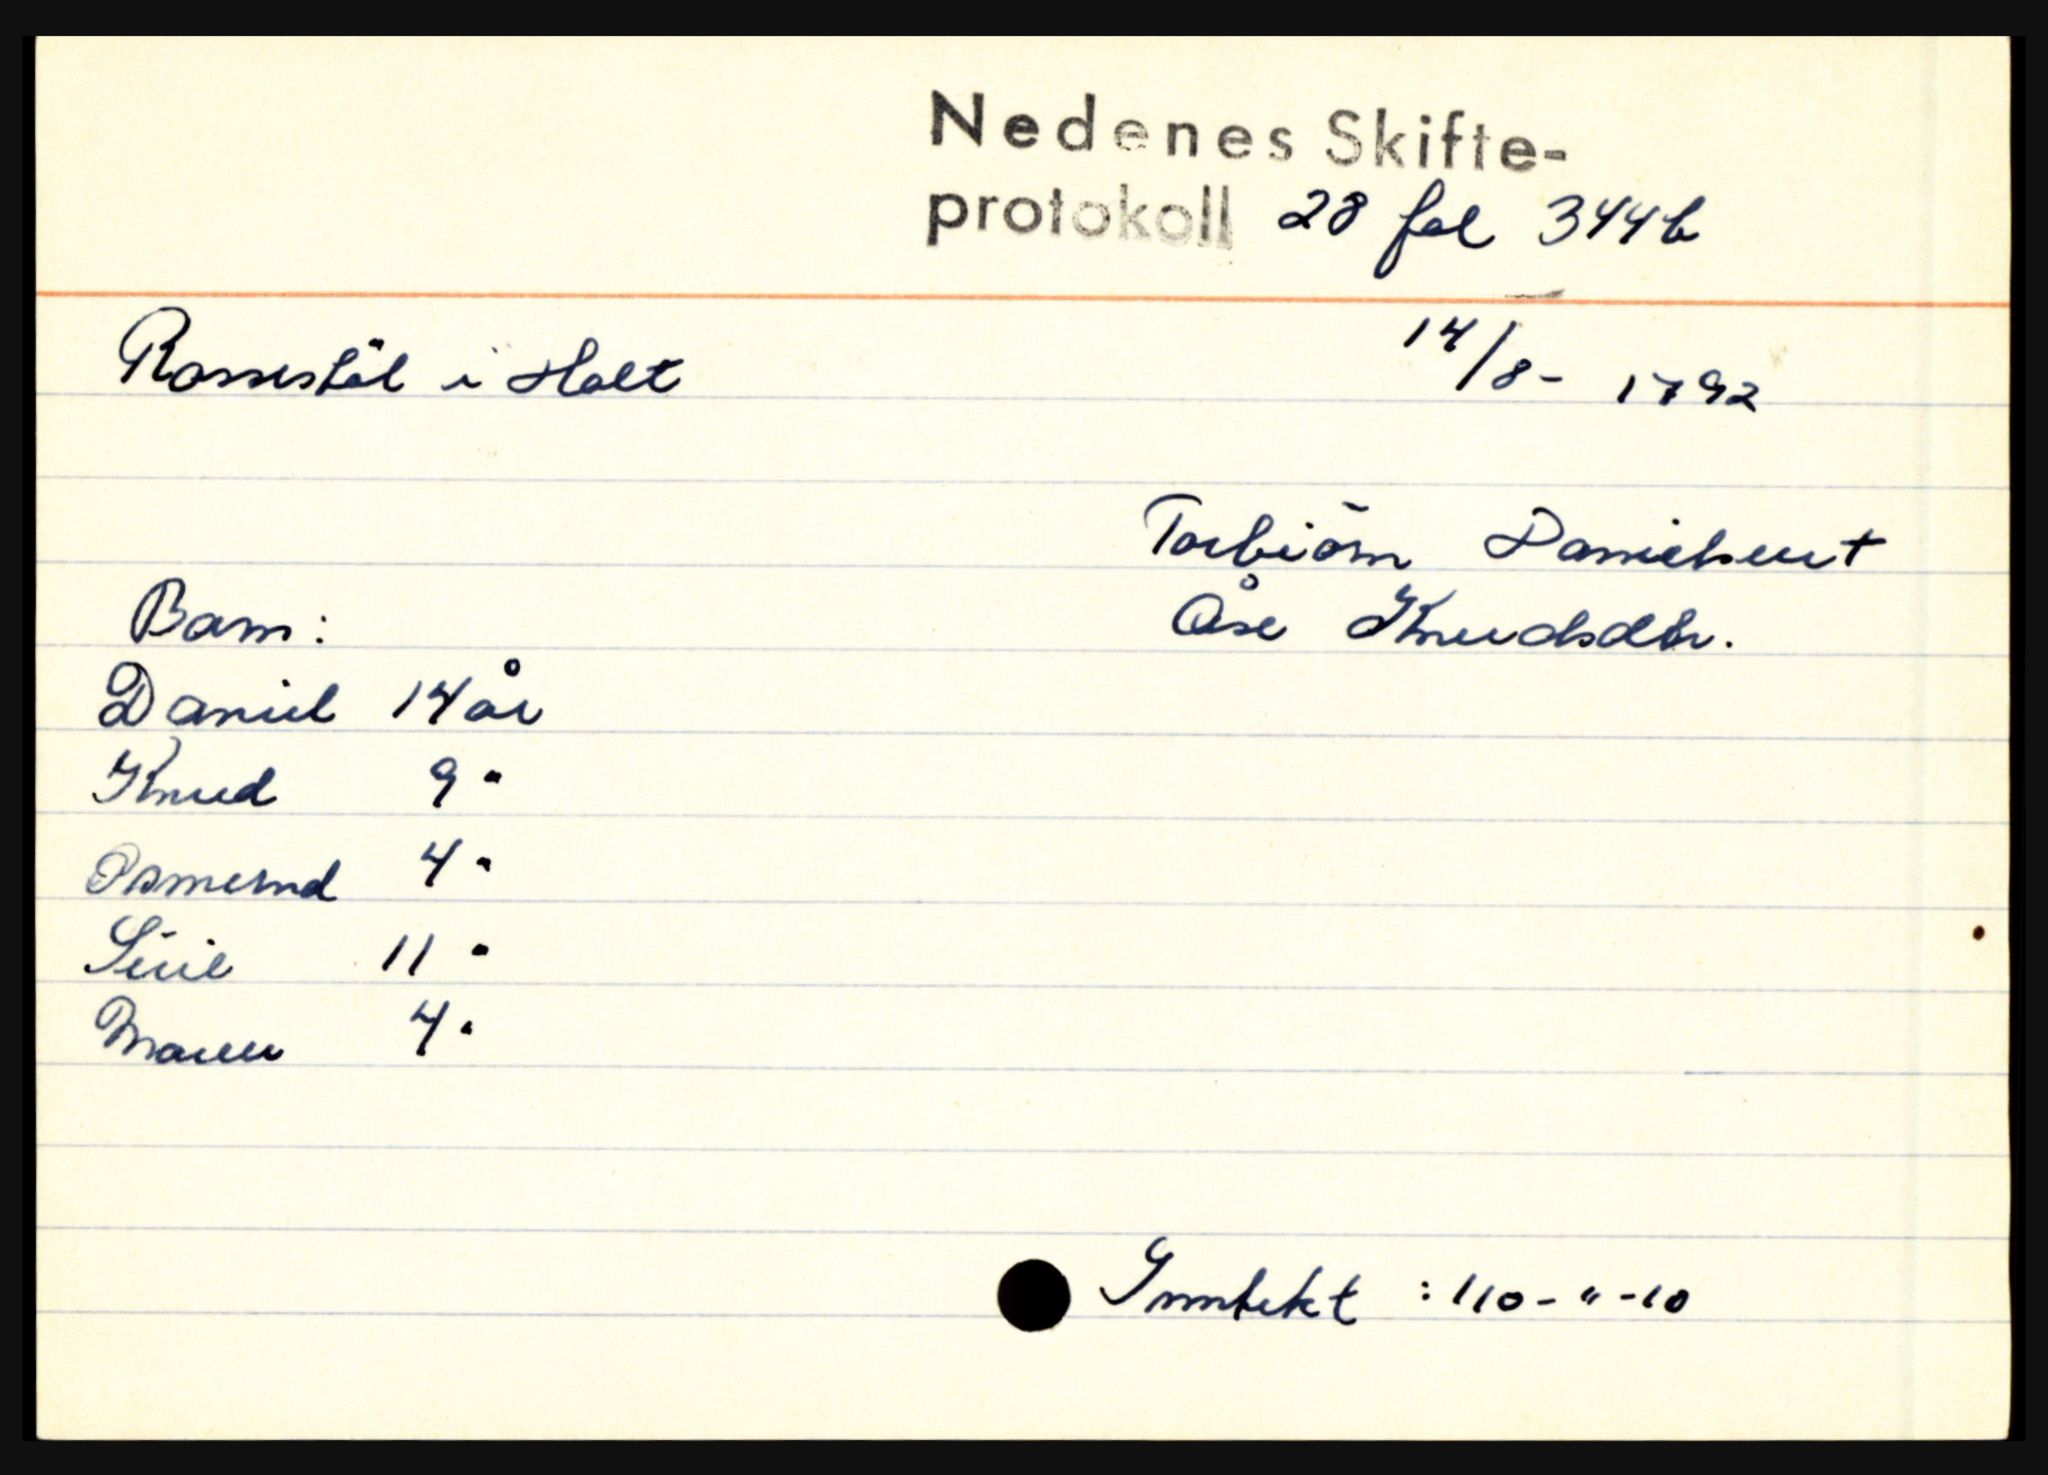 Nedenes Skifte-
protokoll 28 fol 344b
Rossestöl i Holt 14/8- 1792
Torbiörn Danielsen †
Barn: Åse Knudsdtr.
Daniel 14 år
Knud 9 "
Osmund 4 "
Siril 11 "
Maren 4 "
Inntekt : 110-"-10